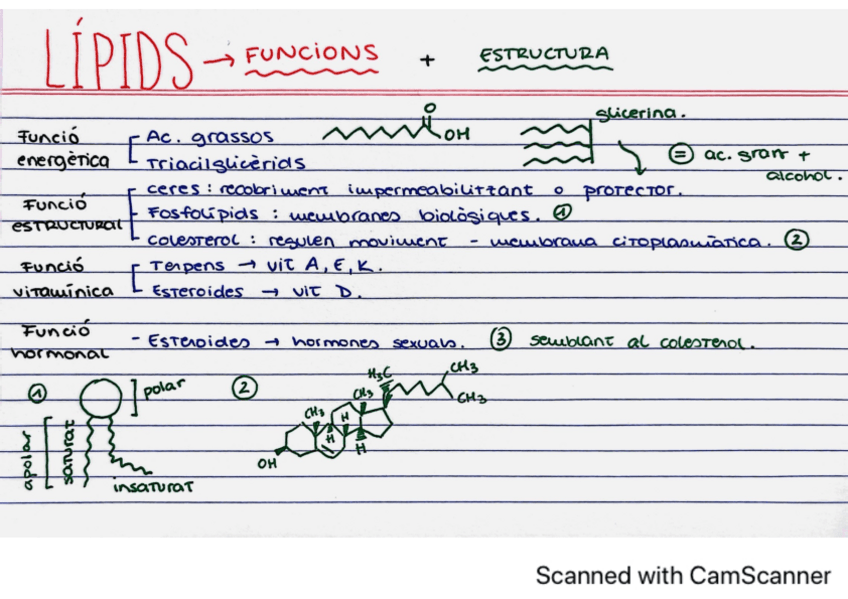 LÍPIDS → FUNCIONS + ESTRUCTURA
Funció energètica
Ac. grassos
O
OH
Triacilglicèrids
glicerina.
= ac. gras +
alcohol.
Funció ESTRUCTURAL
ceres : recobriment impermeabilitzant o protector.
Fosfolípids : membranes biològiques. ①
Colesterol : regulen moviment - membrana citoplasmàtica. ②
Funció vitamínica
Terpens → vit A, E, K.
Esteroides → vit D.
Funció hormonal
- Esteroides → hormones sexuals. ③ semblant al colesterol.
①
polar
apolar
saturat
insaturat
②
H3C
CH3
CH3
CH3
CH3
H
H
H
OH
Scanned with CamScanner